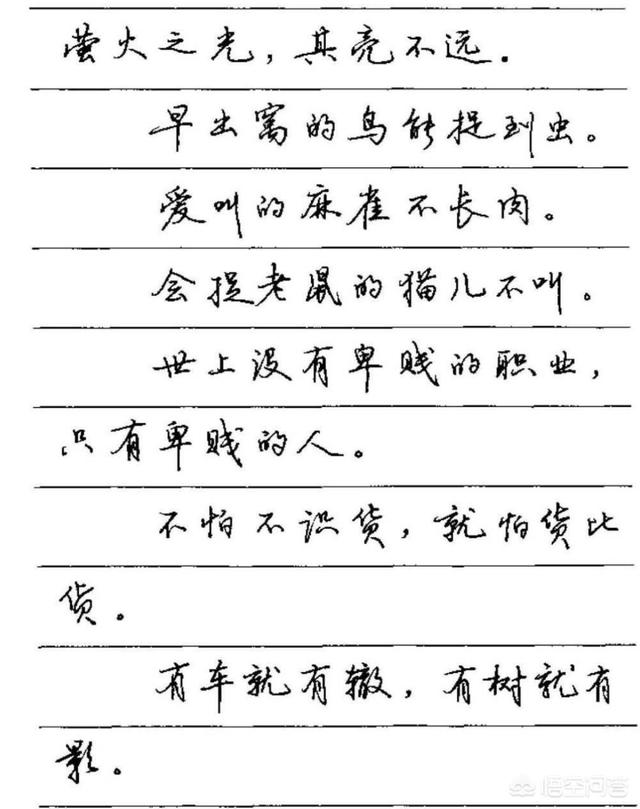 萤火之光，其亮不远．
早出窝的鸟能捉到虫。
爱叫的麻雀不长肉。
会捉老鼠的猫儿不叫．
世上没有卑贱的职业，
只有卑贱的人。
不怕不识货，就怕货比
货。
有车就有辙，有树就有
影。
悟空问答